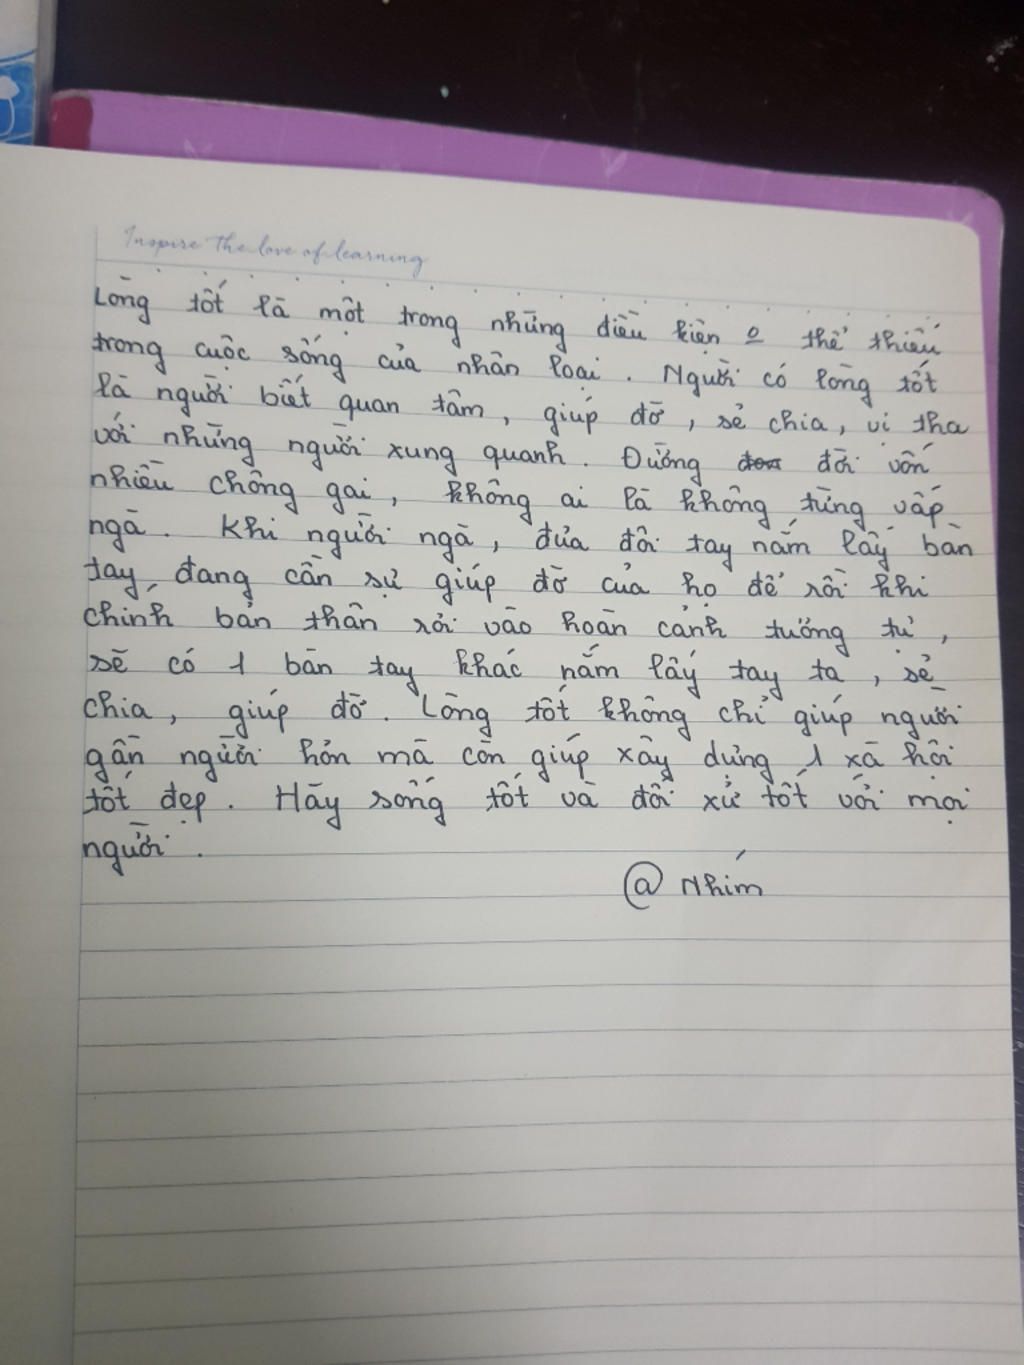 Inspire the love of learning
Lòng tốt là một trong những điều kiện o thể thiếu
trong cuộc sống của nhân loại. Người có lòng tốt
là người biết quan tâm, giúp đỡ, sẻ chia, vị tha
với những người xung quanh. Đường đời vốn
nhiều chông gai, không ai là không từng vấp
ngã. Khi người ngã, đưa đôi tay nắm lấy bàn
tay đang cần sự giúp đỡ của họ để rồi khi
chính bản thân rơi vào hoàn cảnh tương tự,
sẽ có 1 bàn tay khác nắm lấy tay ta, sẻ
chia, giúp đỡ. Lòng tốt không chỉ giúp người
gần người hơn mà còn giúp xây dựng 1 xã hội
tốt đẹp. Hãy sống tốt và đối xử tốt với mọi
người.
@ Nhím